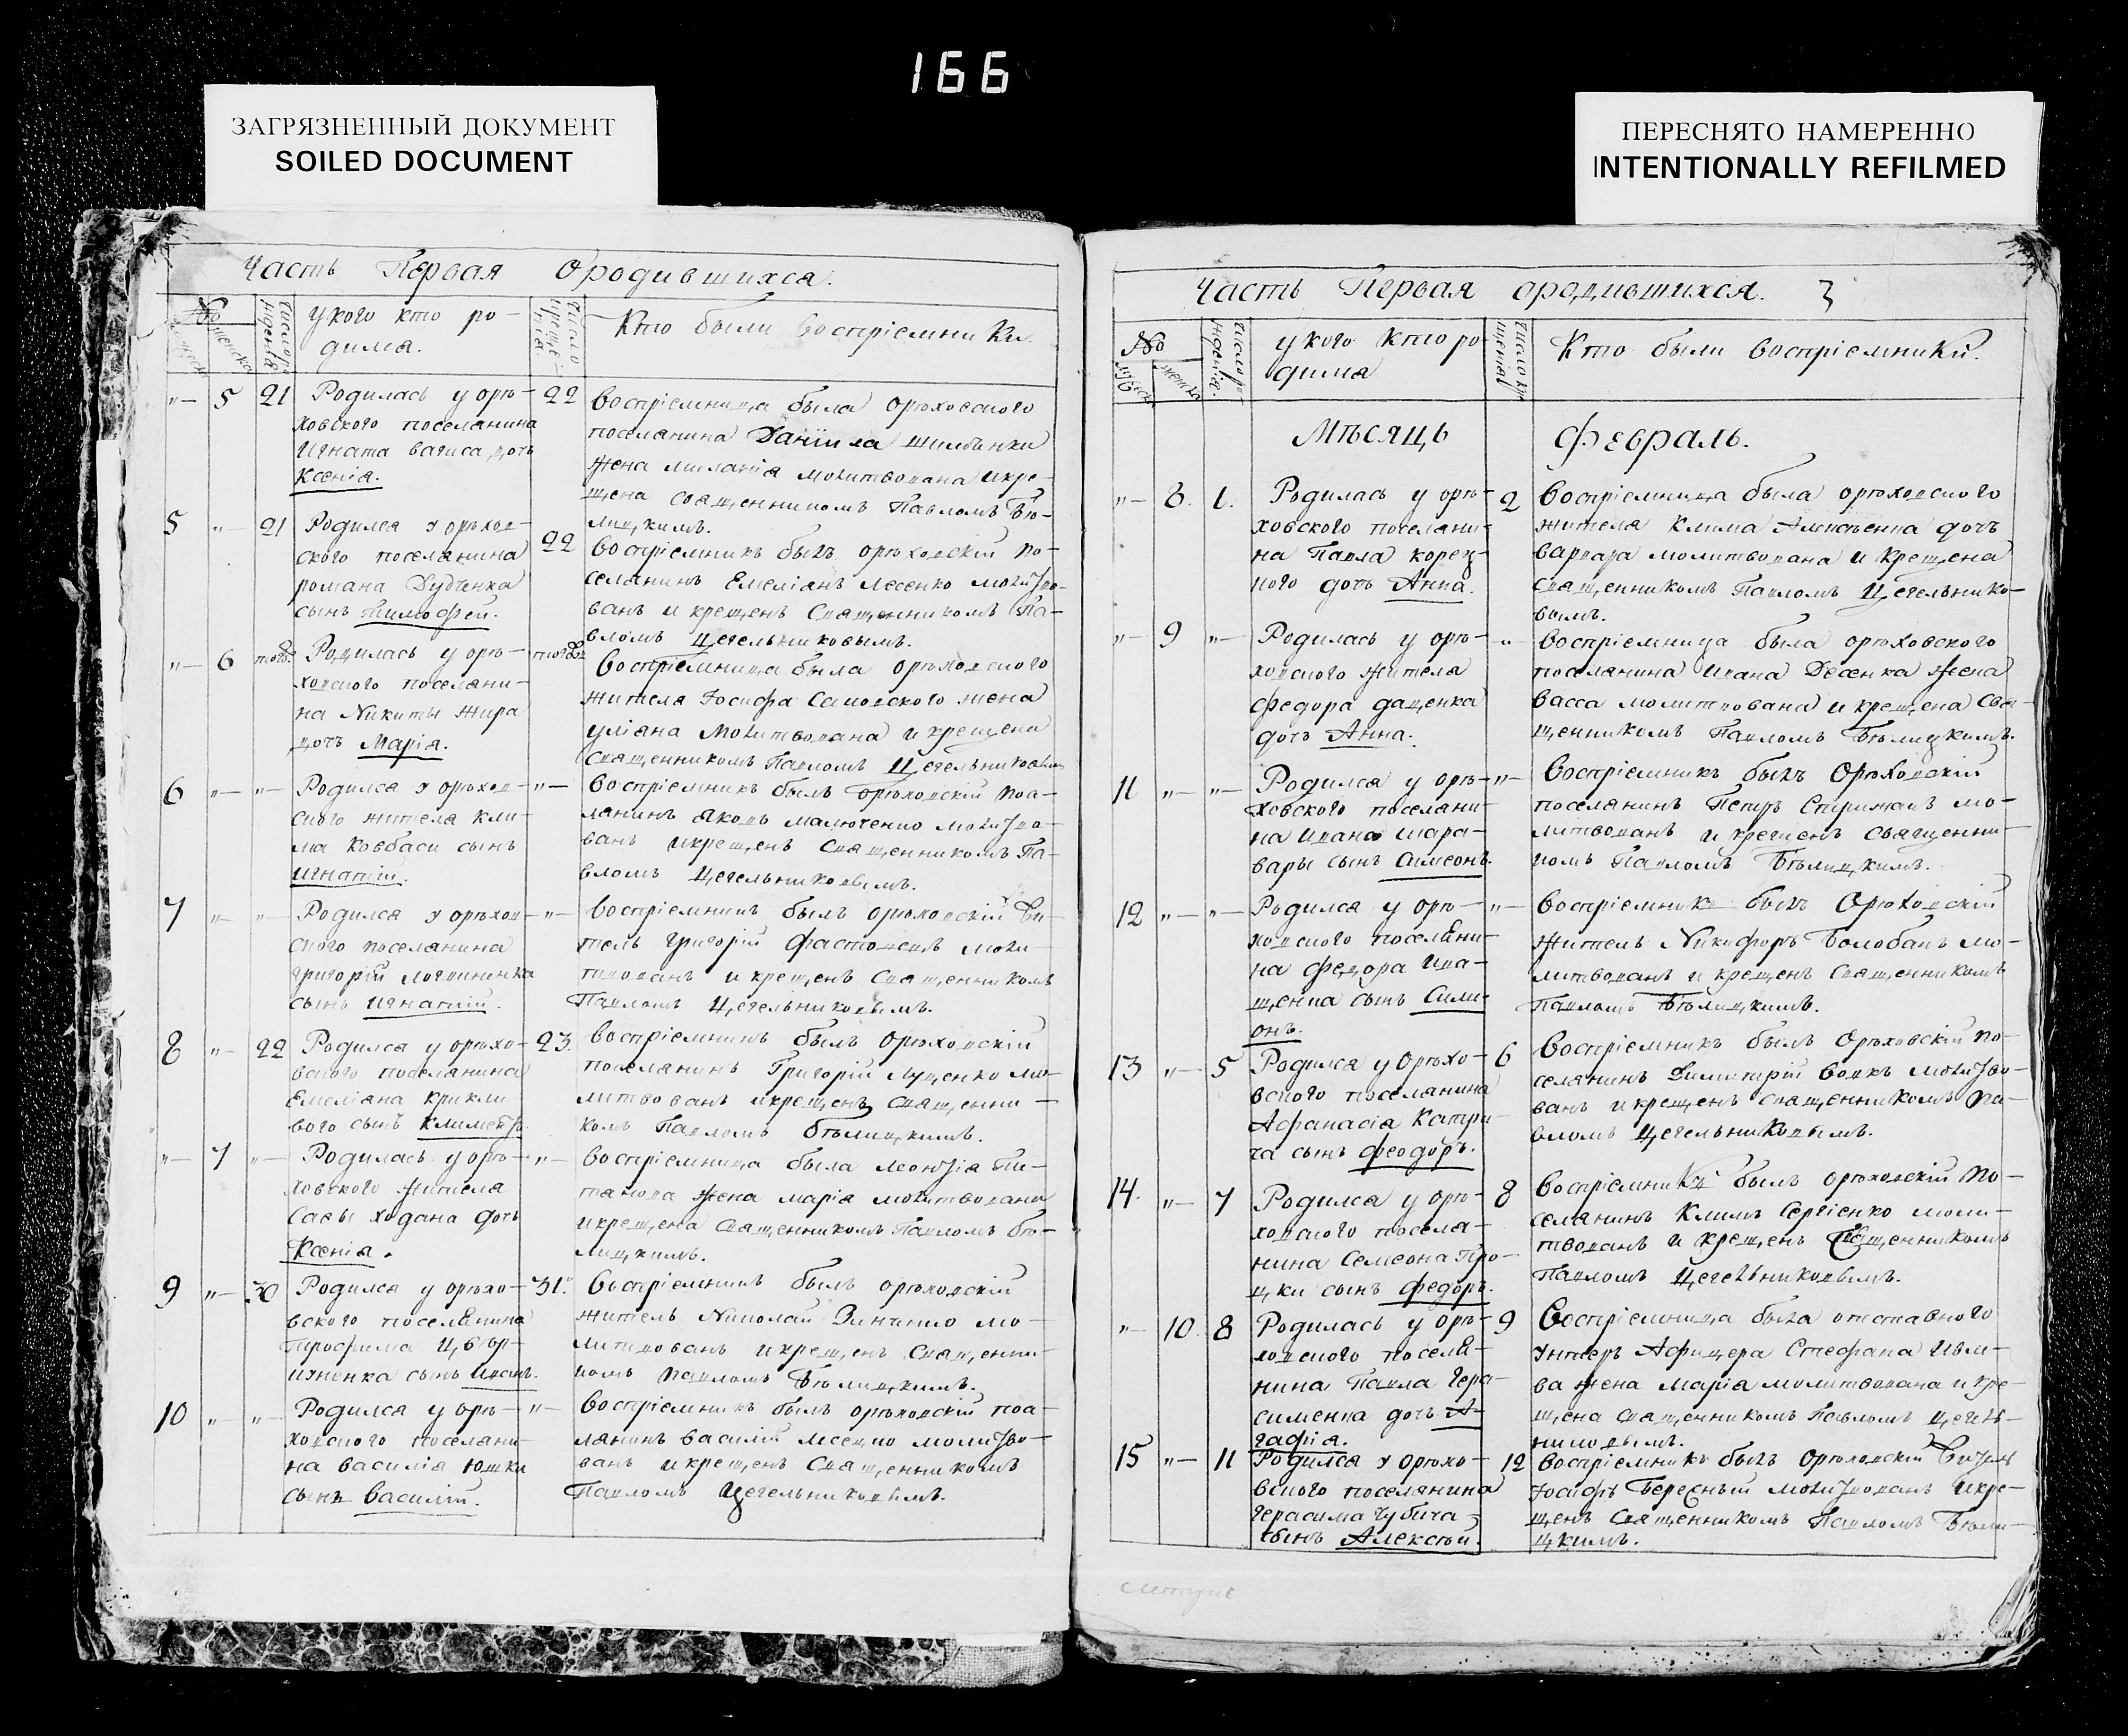 166
ЗАГРЯЗНЕННЫЙ ДОКУМЕНТ
SOILED DOCUMENT
ПЕРЕСНЯТО НАМЕРЕННО
INTENTIONALLY REFILMED
Часть Первая Ородившихся.
№ У кого кто ро-
дился. Кто были воспріемники.
"— 5 21 Родилась у орѣ- 22
ховского поселянина
Игната вагиса дочь
Ксенія.
Воспріемница была орѣховского
поселянина Даніила
жена миланія молитвована икре-
щена священникомъ Павломъ Бѣ-
лицкимъ.
5 "— 21 Родился у орѣхов- 22
ского поселянина
романа Дудченка
сынъ тимофей.
Воспріемникъ былъ орѣховскій по-
селянинъ Емеліанъ Лесенко молитво-
ванъ и крещенъ Священникомъ Па-
вломъ Цегельниковымъ.
"— 6 тогож. Родилась у орѣ- тогож.
ховского поселяни-
на Никиты жира
дочь Марія.
Воспріемница была Орѣховского
жителя Іосифа жена
уліана молитвована и крещена
Священникомъ Павломъ Цегельниковым
6 "— "— Родился у орѣхов- "—
ского жителя кли-
ма ковбаси сынъ
игнатій.
Воспріемникъ былъ орѣховскій посе-
лянинъ яковъ малюченко молитво-
ванъ икрещенъ Священникомъ Па-
вломъ Цегельниковымъ.
7 "— "— Родился у орѣхов- "—
ского поселянина
григорій логвиненка
сынъ игнатій.
Воспріемникъ былъ орѣховскій жи-
тель григорій Фастовецъ моли-
твованъ и крещенъ Священникомъ
Павломъ Цегельниковымъ.
8 "— 22 Родился у орѣхо- 23.
вского поселянина
Емеліана крикли
вого сынъ климентъ.
Воспріемникъ былъ Орѣховскій
поселянинъ Григорій Луценко мо-
литвованъ икрещенъ Священни-
комъ Павломъ бѣлицкимъ.
"— 7 "— Родилась у орѣ- "—
ховского жителя
Савы ходана дочь
Ксенія.
воспріемница была леонтія ти-
танова жена марія молитвована
икрещена Священникомъ Павломъ бѣ-
лицкимъ.
9 "— 30 Родился у орѣхо- 31.
вского поселянина
трофима
сынъ иванъ.
Воспріемникъ былъ орѣховскій
житель Николай Зинченко мо-
литвованъ икрещенъ Священни-
комъ Павломъ Бѣлицкимъ.
10 "— "— Родился у орѣ- "—
ховского поселяни-
на василія Юшки
сынъ василій.
Воспріемникъ былъ орѣховскій посе-
лянинъ василій лесенко молитво-
ванъ икрещенъ Священникомъ
Павломъ Цегельниковымъ.
Часть Первая ородившихся. 3
№ у кого кто ро-
дился Кто были воспріемники.
Мѣсяцъ Февраль.
"— 8. 1. Родилась у орѣ- 2
ховского поселяни-
на Павла корец-
кого дочь Анна.
Воспріемница была орѣховского
жителя Клима дочь
варвара молитвована и крещена
священникомъ Павломъ Цегельнико-
вымъ.
"— 9 "— Родилась у орѣ- "—
ховского жителя
федора даценка
дочь Анна.
Воспріемница была орѣховского
поселянина ивана Десенка жена
васса молитвована и крещена Свя-
щенникомъ Павломъ Бѣлицкимъ.
11 "— "— Родился у орѣ- "—
ховского поселяни-
на ивана шара-
вары сынъ Симеонъ.
Воспріемникъ былъ Орѣховскій
поселянинъ Петръ Стрижакъ мо-
литвованъ и крещенъ священни-
комъ Павломъ Бѣлицкимъ.
12 "— "— Родился у орѣ- "—
ховского поселяни-
на федора ива-
щенка сынъ Симе-
онъ.
воспріемникъ былъ Орѣховскій
житель Никифоръ Болобанъ мо-
литвованъ и крещенъ Священникомъ
Павломъ Бѣлицкимъ.
13 "— 5 Родился у Орѣхо- 6
вского поселянина
Афанасія Капри-
ча сынъ феодоръ.
Воспріемникъ былъ Орѣховскій по-
селянинъ Димитрій вовкъ молитво-
ванъ и крещенъ священникомъ Па-
вломъ Цегельниковымъ.
14. "— 7 Родился у орѣ- 8
ховского поселя-
нина Семеона Про-
цки сынъ федоръ.
Воспріемникъ былъ орѣховскій по-
селянинъ Климъ Сергіенко моли-
твованъ и крещенъ Священникомъ
Павломъ Цегельниковымъ.
"— 10 8 Родилась у орѣ- 9
ховского поселя-
нина Павла Гера-
сименка дочь А-
гафія.
Воспріемница была отставного
унтеръ Афицера Стефана
жена Марія молитвована икре-
щена Священникомъ Павломъ Цегель-
никовымъ.
15 "— 11 Родился у орѣхо- 12
вского поселянина
герасима Чубича
сынъ Алексѣй.
Воспріемникъ былъ Орѣховскій житель
Іосифъ Бересный молитвованъ икре-
щенъ Священникомъ Павломъ Бѣли-
цкимъ.